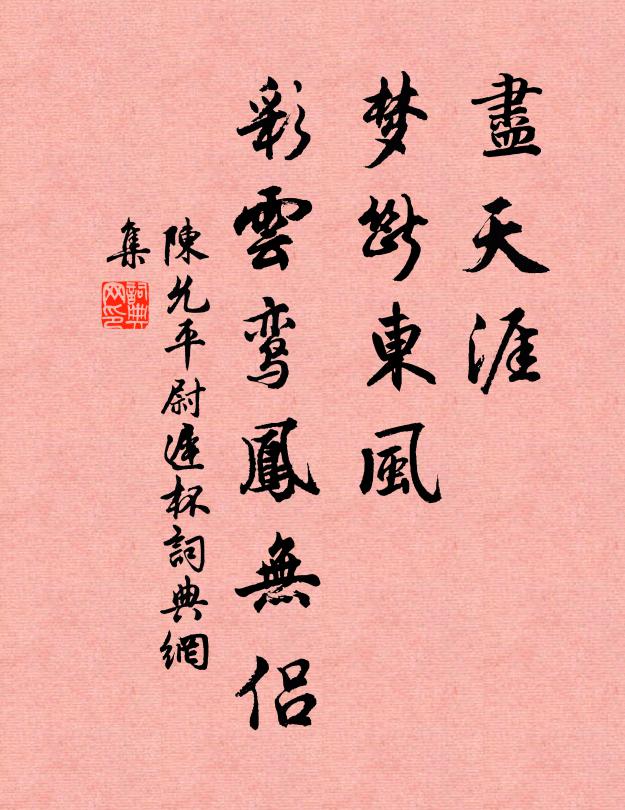 盡天涯
梦断東風
彩雲鸾鳳無侶
陳允平尉遲杯詞典網
集
詞典
网印